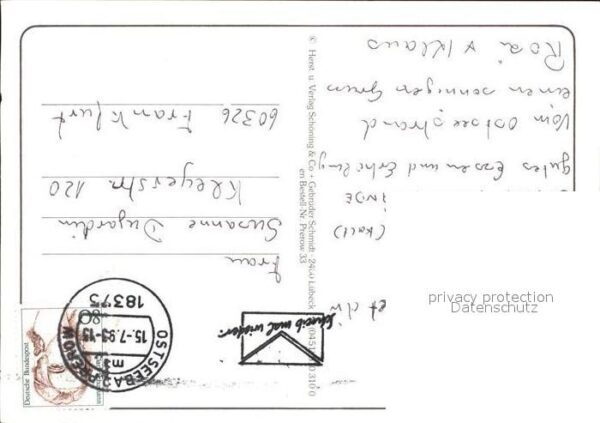 et
(kalt)
gutes Essen und Erholung
Vom Ostseestrand
einen sonnigen Gruss
Rosi + Klaus
© Herst. u. Verlag Schöning & Co + Gebrüder Schmidt · 2400 Lübeck
en Bestell-Nr. Prerow 33
Schreib mal wieder
OSTSEEBAD PREROW
15.-7.93-15
18375
80
Deutsche Bundespost
Frau
Susanne Dujardin
Kleyerstr. 120
60326 Frankfurt
privacy protection
Datenschutz